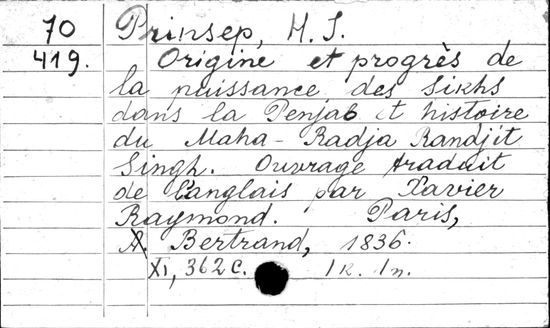 70 Prinsep, H. T.
419. Origine et progrès de
la puissance des Sikhs
dans la Penjab et histoire
du Maha-Radja Randjit
Singh. Ouvrage traduit
de l'anglais par Xavier
Raymond. Paris,
A. Bertrand, 1836.
XI, 362 c. 1 к. 1 п.